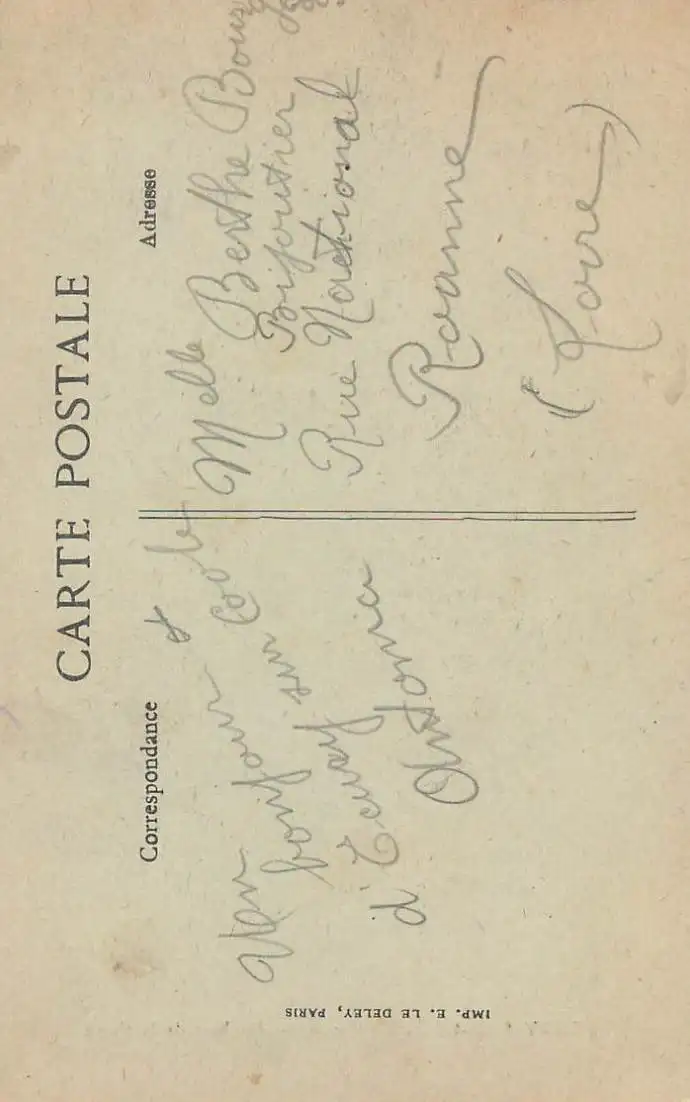 CARTE POSTALE
Correspondance
Adresse
bonjour
sur
d'
Antonia
Melle Berthe
Bijoutier
Rue Nactional
Roanne
(Loire)
IMP. E. LE DELEY, PARIS